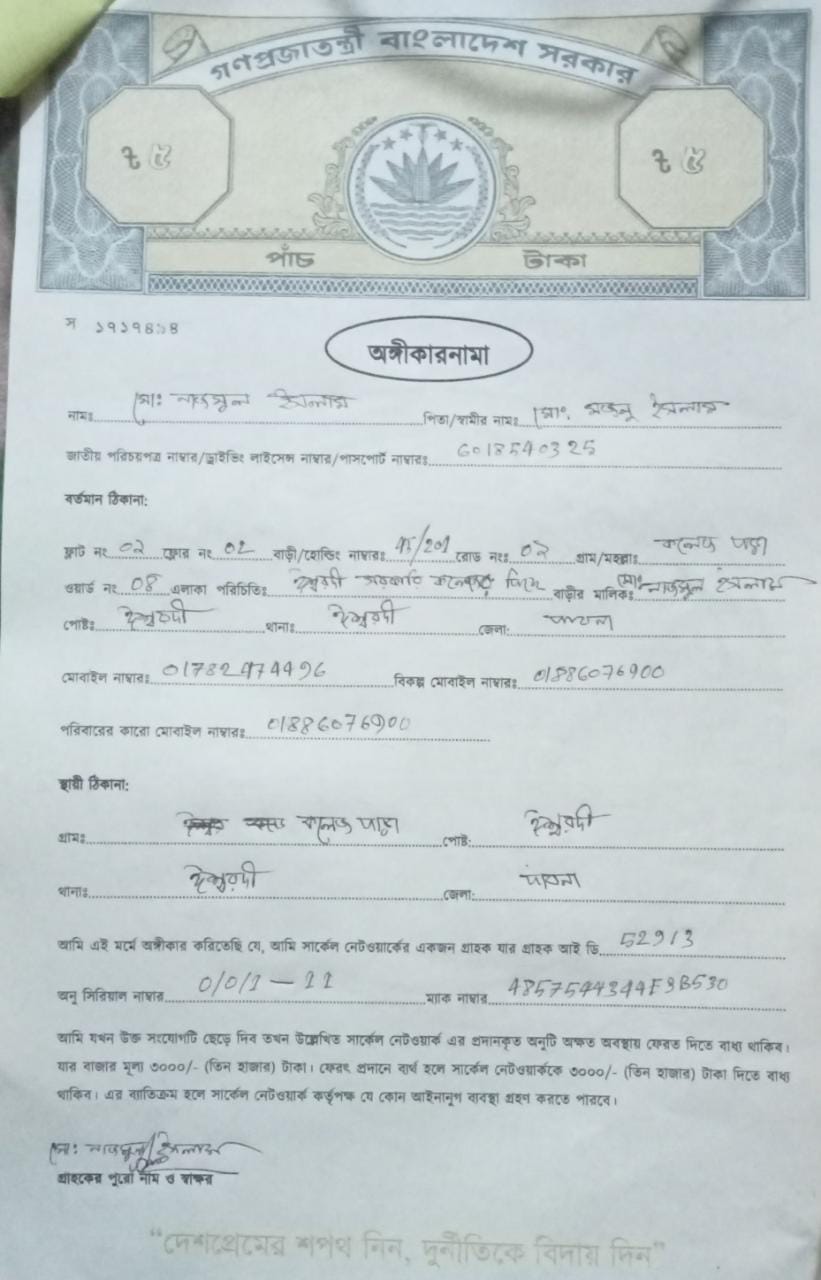 গণপ্রজাতন্ত্রী বাংলাদেশ সরকার
৳ ৫ ৳ ৫
পাঁচ টাকা
স ১৭১৭৪১৪
অঙ্গীকারনামা
নামঃ মোঃ নাজমুল ইসলাম পিতা/স্বামীর নামঃ মোঃ মজনু ইসলাম
জাতীয় পরিচয়পত্র নাম্বার/ড্রাইভিং লাইসেন্স নাম্বার/পাসপোর্ট নাম্বারঃ 6018540325
বর্তমান ঠিকানা:
ফ্লাট নং ০২ ফ্লোর নং 02 বাড়ী/হোল্ডিং নাম্বারঃ /201 রোড নংঃ ০২ গ্রাম/মহল্লাঃ কলেজ পাড়া
ওয়ার্ড নং 08 এলাকা পরিচিতিঃ ঈশ্বরদী সরকারি কলেজের পিছে বাড়ীর মালিকঃ মোঃ নাজমুল ইসলাম
পোষ্টঃ ঈশ্বরদী থানাঃ ঈশ্বরদী জেলা: পাবনা
মোবাইল নাম্বারঃ 01782474496 বিকল্প মোবাইল নাম্বারঃ 01886076900
পরিবারের কারো মোবাইল নাম্বারঃ 01886076900
স্থায়ী ঠিকানা:
গ্রামঃ কলেজ পাড়া পোষ্ট: ঈশ্বরদী
থানাঃ ঈশ্বরদী জেলা: পাবনা
আমি এই মর্মে অঙ্গীকার করিতেছি যে, আমি সার্কেল নেটওয়ার্কের একজন গ্রাহক যার গ্রাহক আই ডি 52913
অনু সিরিয়াল নাম্বার 0/0/1 - 11 ম্যাক নাম্বার 48575443449F3B530
আমি যখন উক্ত সংযোগটি ছেড়ে দিব তখন উল্লেখিত সার্কেল নেটওয়ার্ক এর প্রদানকৃত অনুটি অক্ষত অবস্থায় ফেরত দিতে বাধ্য থাকিব।
যার বাজার মূল্য ৩০০০/- (তিন হাজার) টাকা। ফেরৎ প্রদানে ব্যর্থ হলে সার্কেল নেটওয়ার্ককে ৩০০০/- (তিন হাজার) টাকা দিতে বাধ্য
থাকিব। এর ব্যতিক্রম হলে সার্কেল নেটওয়ার্ক কর্তৃপক্ষ যে কোন আইনানুগ ব্যবস্থা গ্রহণ করতে পারবে।
মোঃ নাজমুল ইসলাম
গ্রাহকের পুরো নাম ও স্বাক্ষর
“দেশপ্রেমের শপথ নিন, দুর্নীতিকে বিদায় দিন”